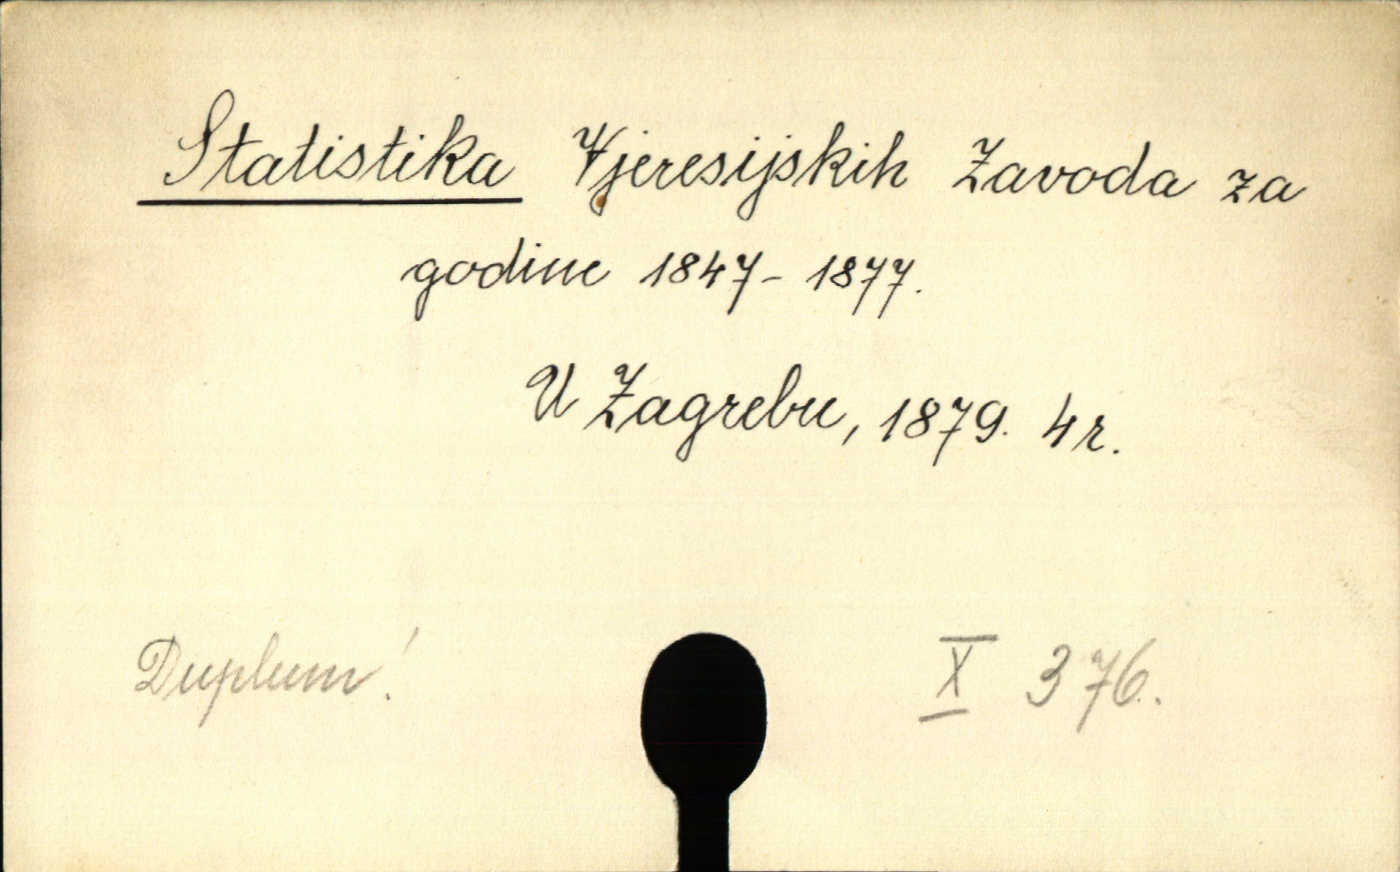 Statistika Vjeresijskih Zavoda za
godine 1847-1877.
U Zagrebu, 1879. 4r.
Duplum!
X 376.